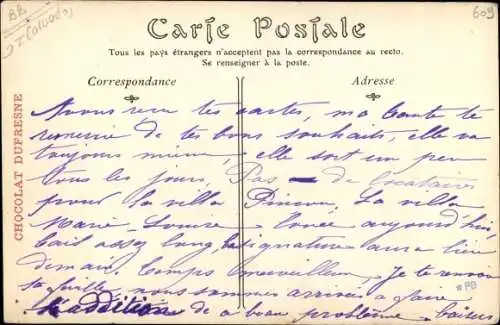 BB
609
Carte Postale
Tous les pays étrangers n'acceptent pas la correspondance au recto.
Se renseigner à la poste.
Correspondance
Adresse
CHOCOLAT DUFRESNE
Nous reçu tes cartes, ma tante te
remercie de tes bons souhaits, elle va
toujours mieux, elle sort un peu
tous les jours, Pas de locataires
pour la villa Pinson, La villa
Marie-Louise louée aujourd'hui
bail assez long, la signature aura lieu
demain. Temps merveilleux, Je te renvoie
ta feuille, nous sommes arrivés à faire
l'addition de a beau problème baisers
*PB